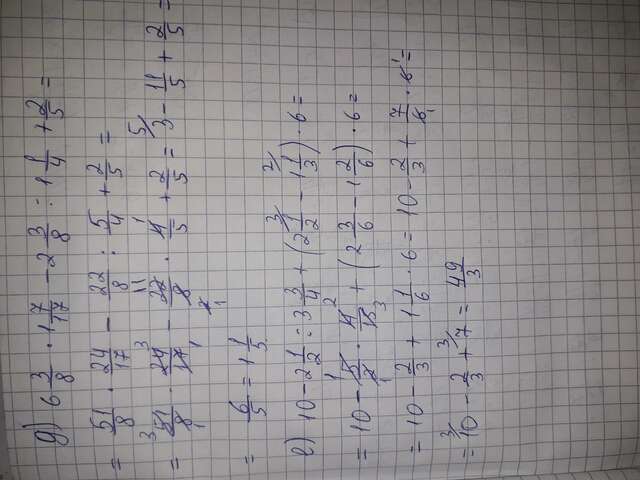 д) 6 3/8 · 1 7/17 - 2 3/8 : 1 1/4 + 2/5 =
= 51/8 · 24/17 - 22/8 : 5/4 + 2/5 =
= 51/8 · 24/17 - 22/8 · 4/5 + 2/5 = 3 - 11/5 + 2/5 =
= 6/5 = 1 1/5
е) 10 - 2 1/2 : 3 3/4 + (2 1/2 - 1 1/3) · 6 =
= 10 - 5/2 · 4/15 + (2 3/6 - 1 2/6) · 6 =
= 10 - 2/3 + 1 1/6 · 6 = 10 - 2/3 + 7/6 · 6 =
= 10 - 2/3 + 7 = 49/3